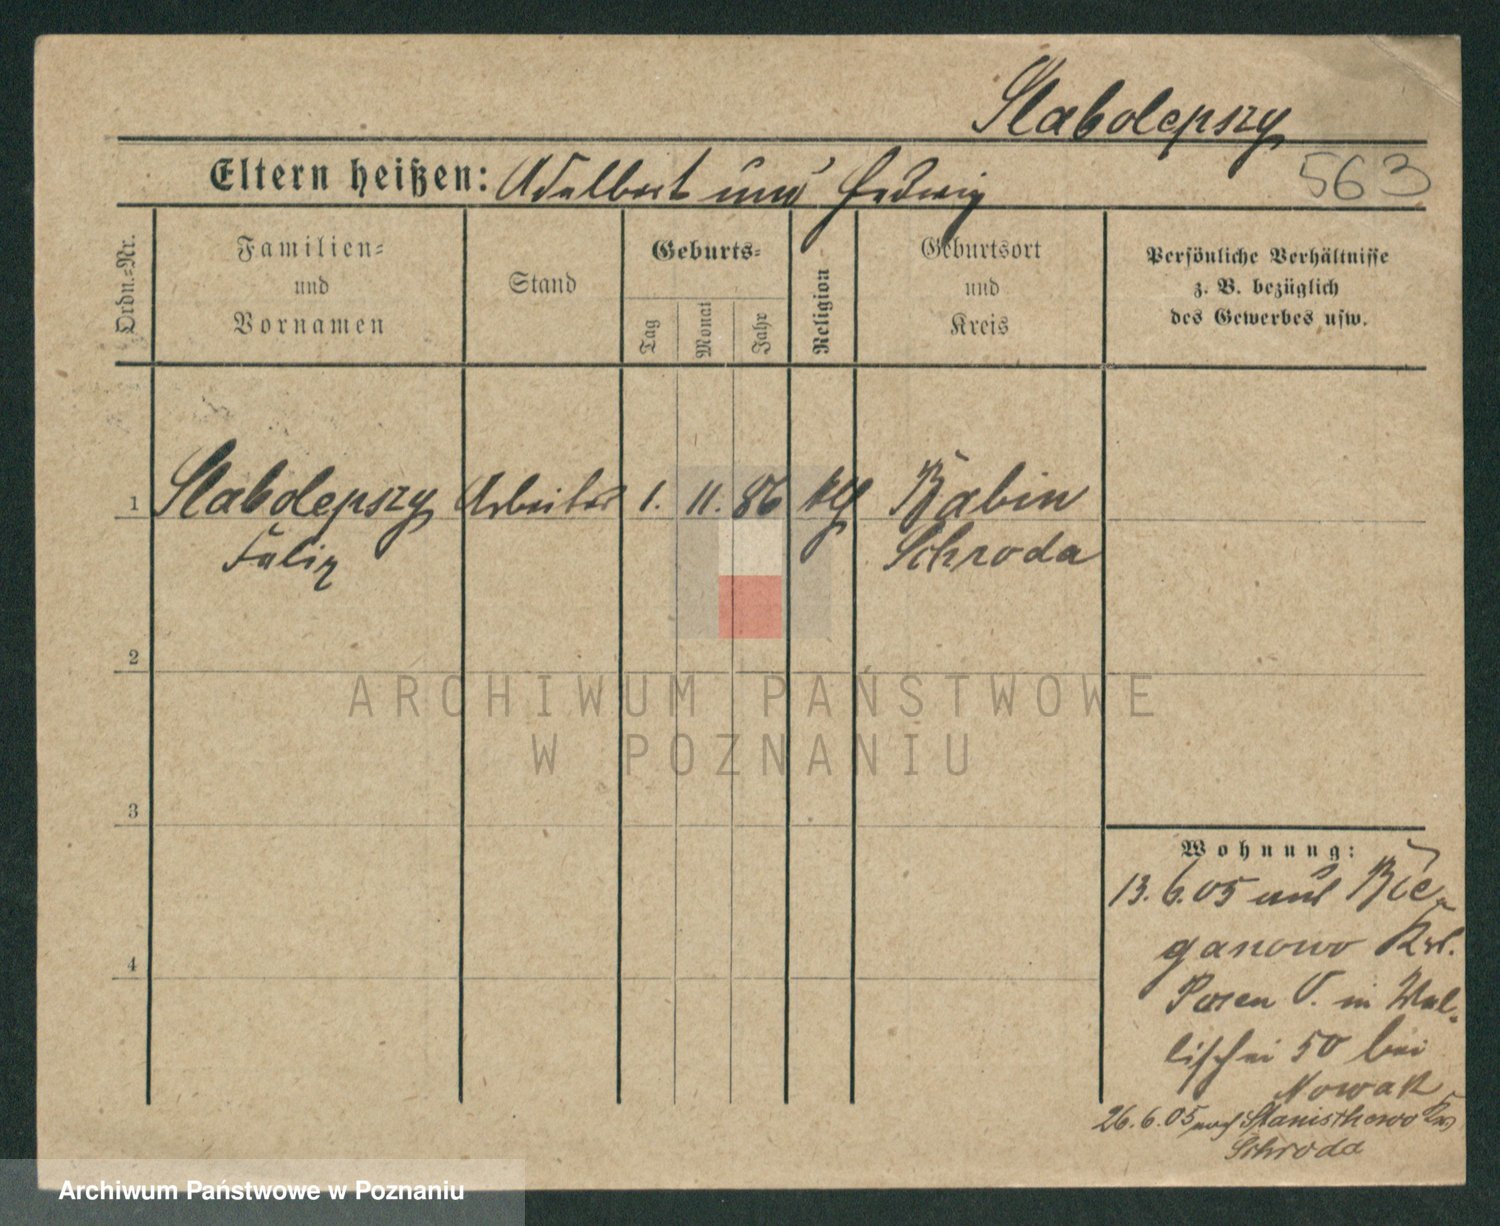 Slabolepszy
Eltern heißen: Adalbert und Hedwig
563
Ordn.-Nr.
Familien-
und
Vornamen
Stand
Geburts-
Tag
Monat
Jahr
Religion
Geburtsort
und
Kreis
Persönliche Verhältnisse
z. B. bezüglich
des Gewerbes usw.
1 Slabolepszy Arbeiter 1. 11. 86 kth Babin
Felix Schroda
2
3
4
ARCHIWUM PAŃSTWOWE
W POZNANIU
Wohnung:
13. 6. 05 aus Bie-
ganowo Krs.
Posen O. in Wal-
lischei 50 bei
Nowak
26. 6. 05 nach Krs
Schroda
Archiwum Państwowe w Poznaniu